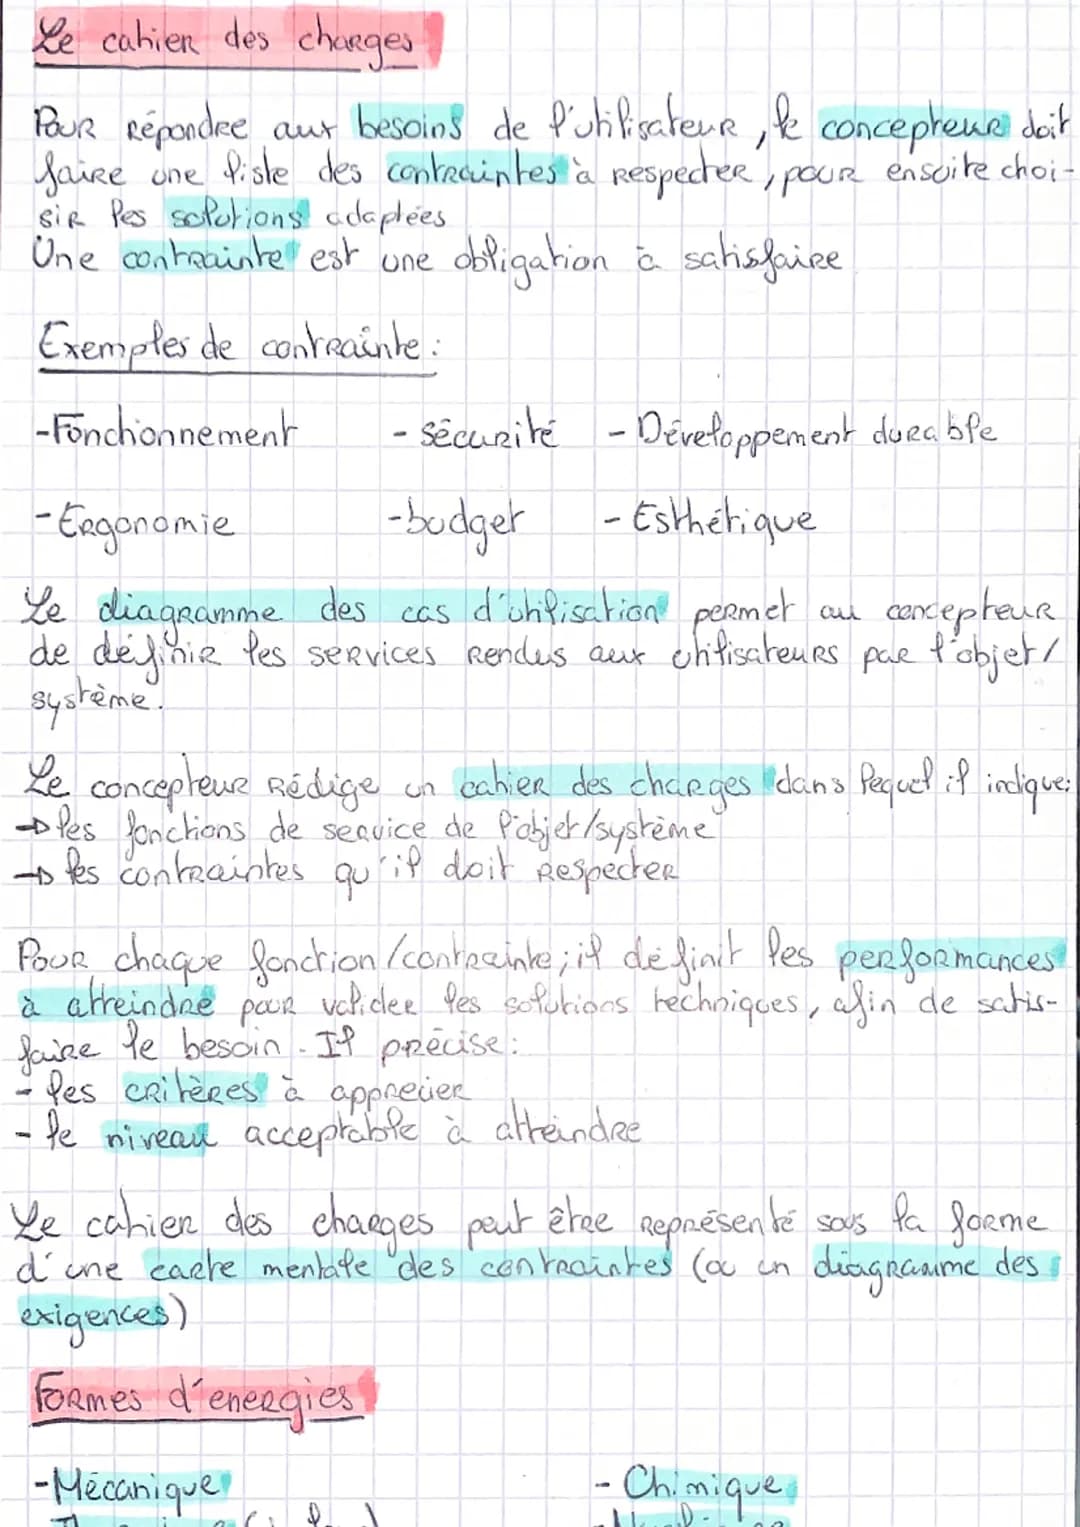 Le cahier des charges
Pour répondre aux besoins de l'utilisateur, le concepteur doit
faire une liste des contraintes à respecter, pour ensuite choi-
sir les solutions adaptées
Une contrainte est une obligation à satisfaire
Exemples de contrainte :
-Fonctionnement - sécurité - Développement durable
-Ergonomie -budget - Esthétique
Le diagramme des cas d'utilisation permet au concepteur
de définir les services rendus aux utilisateurs par l'objet/
système.
Le concepteur rédige un cahier des charges dans lequel il indique:
→ les fonctions de service de l'objet/système
→ les contraintes qu'il doit respecter
Pour chaque fonction/contrainte; il définit les performances
à atteindre pour valider les solutions techniques, afin de satis-
faire le besoin. Il précise :
- les critères à apprecier
- le niveau acceptable à atteindre
Le cahier des charges peut être représenté sous la forme
d'une carte mentale des contraintes (ou un diagramme des
exigences)
Formes d'energies
-Mécanique - Chimique